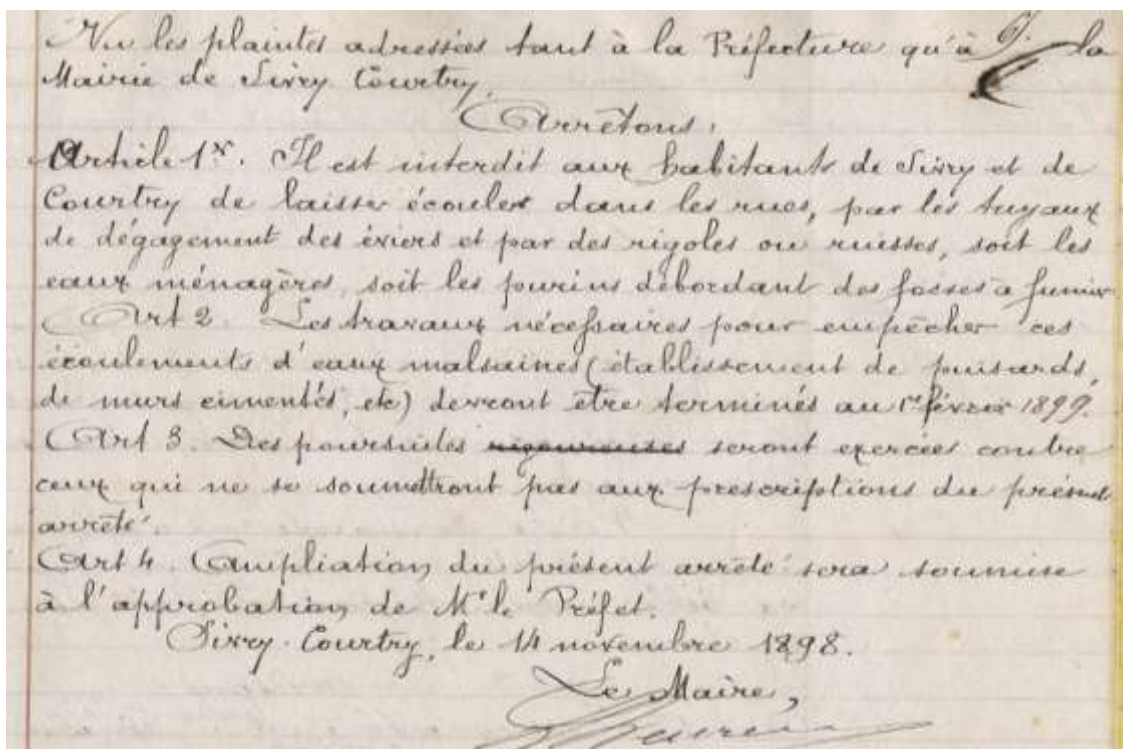 Vu les plaintes adressées tant à la Préfecture qu'à la
Mairie de Sivry Courtry,
Arrêtons:
Article 1er. Il est interdit aux habitants de Sivry et de
Courtry de laisser écouler dans les rues, par les tuyaux
de dégagement des éviers et par des rigoles ou ruisses, soit les
eaux ménagères, soit les purins débordant des fosses à fumier
Art 2. Les travaux nécessaires pour empêcher ces
écoulements d'eaux malsaines (établissement de puisards,
de murs cimentés, etc) devront être terminés au 1er février 1899.
Art 3. Des poursuites rigoureuses seront exercées contre
ceux qui ne se soumettront pas aux prescriptions du présent
arrêté.
Art 4. Ampliation du présent arrêté sera soumise
à l'approbation de Mr le Préfet.
Sivry-Courtry, le 14 novembre 1898.
Le Maire,